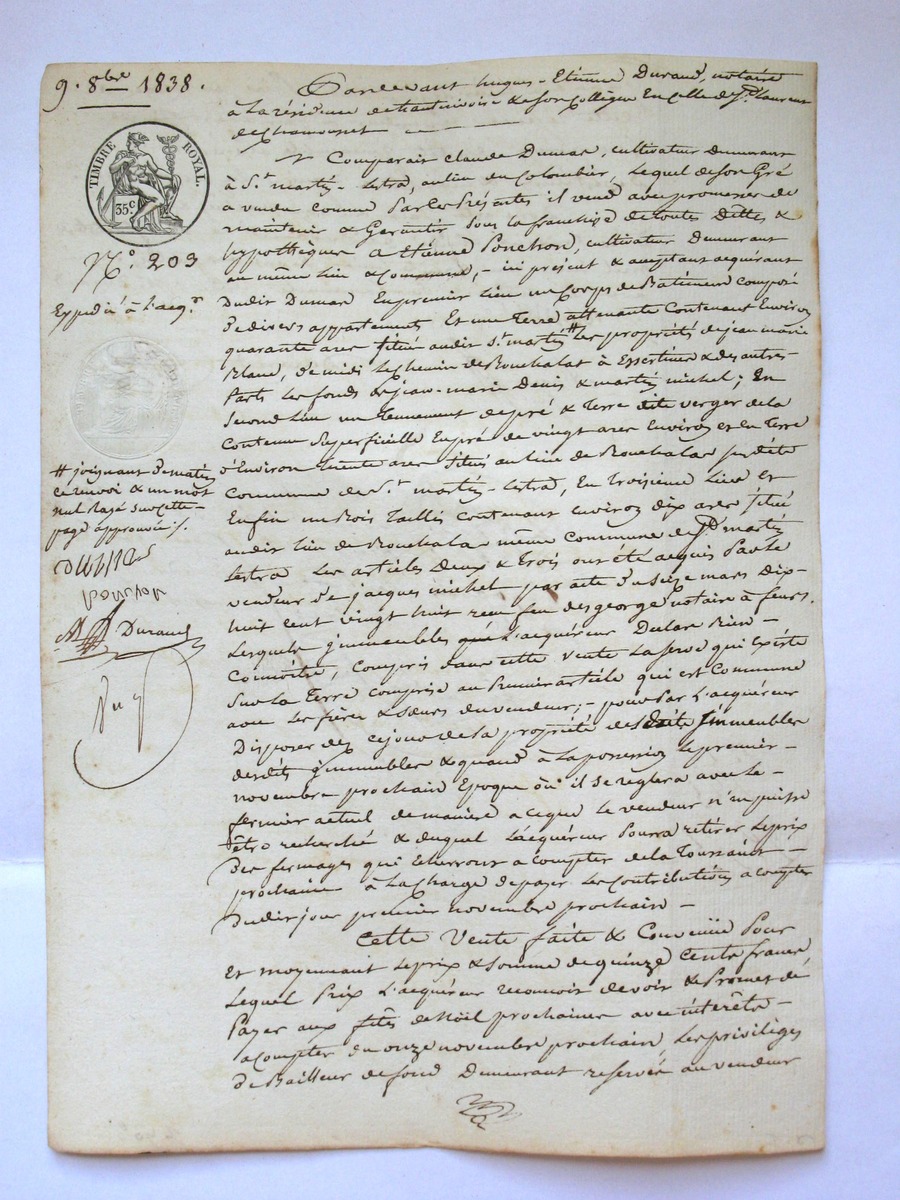 9. 8bre 1838.
TIMBRE ROYAL.
35.c
N.° 203
Expédié à l'acq.r
# joignant de matin
ce renvoi & un mot
nul rayé sur cette
page approuvés ./.
Durand
Pardevant hugues-Etienne Durand, notaire
à la résidence de & son Collègue En celle de St. Laurent
de Chamousset
Comparait claude Dumas, cultivateur demeurant
à S.t martin-Lestra, au lieu du Colombier, Lequel de son Gré
a vendu comme Par Ces Présentes il vend avec promesse de
maintenir & Garantir Sous la franchise de toutes Dettes &
hypothèques a Etienne Ponchon, cultivateur Demeurant
au même Lieu & commune, - ici présent & acceptant acquérant
Dudit Dumas En premier Lieu un Corps de Bâtiment composé
De divers appartements Et une Terre attenante Contenant Environ
quarante ares situé audit S.t martin # les propriétés de jean marie
Blanc, de midi Le Chemin de Rouchalat à Essertines & des autres
Parts Les fonds de jean-marie Denis & martin michel; En
Second Lieu un Tennement de pré & Terre dite verger de la
Contenue Superficielle En pré de vingt ares Environ et En Terre
d'Environ trente ares situés au lieu de susdite
Commune de S.t martin-Lestra, En Troisième Lieu Et
Enfin un Bois Taillis contenant environ dix ares situé
audit lieu de même Commune de St. martin
Lestra Les articles Deux & Trois ont été acquis Par le
vendeur de jacques michel par acte du seize mars Dix-
huit cent vingt huit reçu feu des george notaire à feurs.
Lesquels immeubles que L'acquéreur Déclare Bien
Connoître, Compris dans cette vente La serve qui Existe
Sur la Terre comprise au Premier article qui est Commune
avec Les frères & sœurs du vendeur; - pour Par L'acquéreur
Disposer dès ce jour de la propriété desdits immeubles
desdits immeubles & quand à la possession Le premier
novembre prochain Epoque où il se réglera avec Le
fermier actuel de manière a ce que Le vendeur n'en puisse
être recherché & duquel L'acquéreur Pourra retirer Le prix
Des fermages qui Echerront a compter de la Toussaint
prochaine à La Charge de payer Les Contributions a compter
Dudit jour premier novembre prochain -
Cette Vente faite & Convenüe Pour
Et moyennant Le prix & Somme de quinze Cents francs
Lequel Prix L'acquéreur reconnoit devoir & Promet de
Payer aux fêtes de Noël prochaines avec intérêts
a Compter du onze novembre prochain, Les privilèges
de Bailleur de fond Demeurant reservés au vendeur